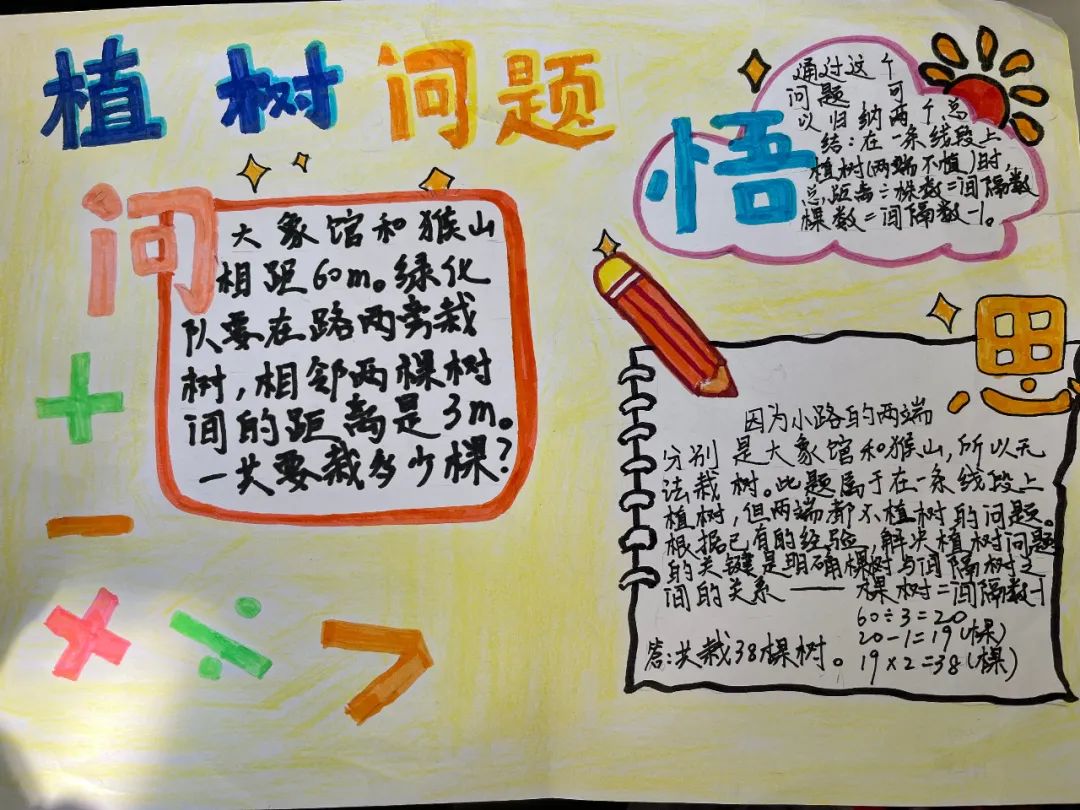 植树问题
问
大象馆和猴山
相距60m。绿化
队要在路两旁栽
树,相邻两棵树
间的距离是3m。
一共要栽多少棵?
+
-
×
÷
>
悟
通过这个
问题 可
以归纳两个总
结:在一条线段上
植树(两端不植)时,
总距离÷株数=间隔数
棵数=间隔数-1。
思
因为小路的两端
分别是大象馆和猴山,所以无
法栽树。此题属于在一条线段上
植树,但两端都不植树的问题。
根据已有的经验,解决植树问题
的关键是明确棵树与间隔树之
间的关系——棵树=间隔数-1
60÷3=20
20-1=19(棵)
19×2=38(棵)
答:共栽38棵树。